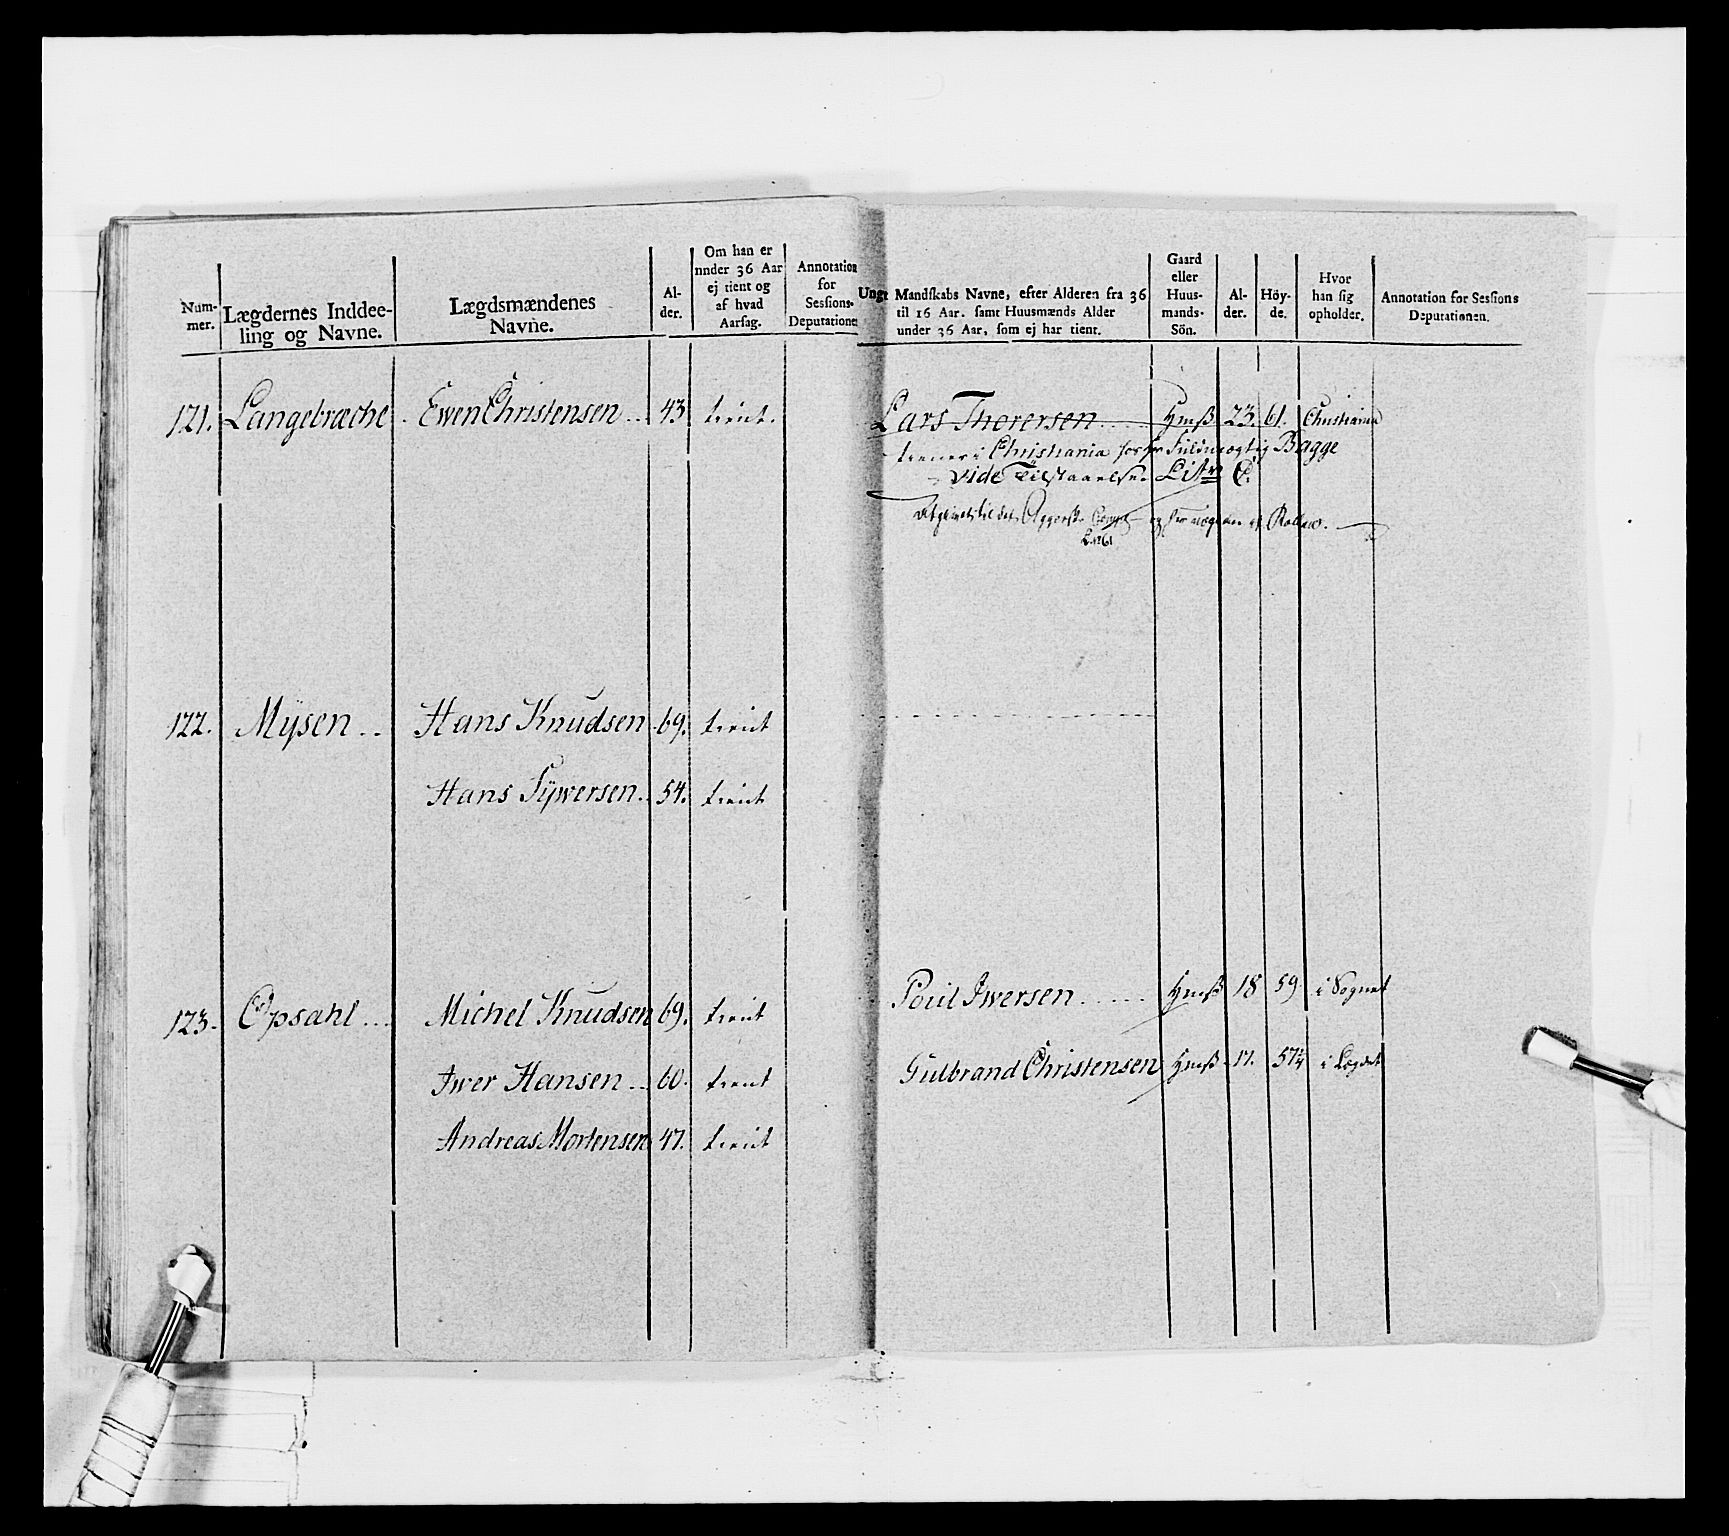 Num-
mer.
Lægdernes Inddee-
ling og Navne.
Lægdsmændenes
Navne.
Al-
der.
Om han er
nnder 36 Aar
ej tient og
af hvad
Aarsag.
Annotation
for
Sessions-
Deputationen
Ungt Mandskabs Navne, efter Alderen fra 36
til 16 Aar. samt Huusmænds Alder
under 36 Aar, som ej har tient.
Gaard
eller
Huus-
mands-
Sön.
Al-
der.
Höy-
de.
Hvor
han sig
opholder.
Annotation for Sessions
Deputationen.
121. Langebræche Ewen Christensen 43 tient. Lars Thorersen Hmß 23. 61. Christiania
tiener i Christiania hos Fuldmægtig Bagge
vide Tilstaaelse Listen C.
Afgivet til det Aggersh. og her af Rollen.
L. No 61
122. Mÿsen Hans Knudsen 69. tient
Hans Sÿwersen 54. tient
123. Opsahl Michel Knudsen 69. tient Poul Iwersen Hmß 18 59 i Sognet
Iwer Hansen 60. tient Gulbrand Christensen Hmß 17. 57¼ i Lægdet
Andreas Mortensen 47. tient